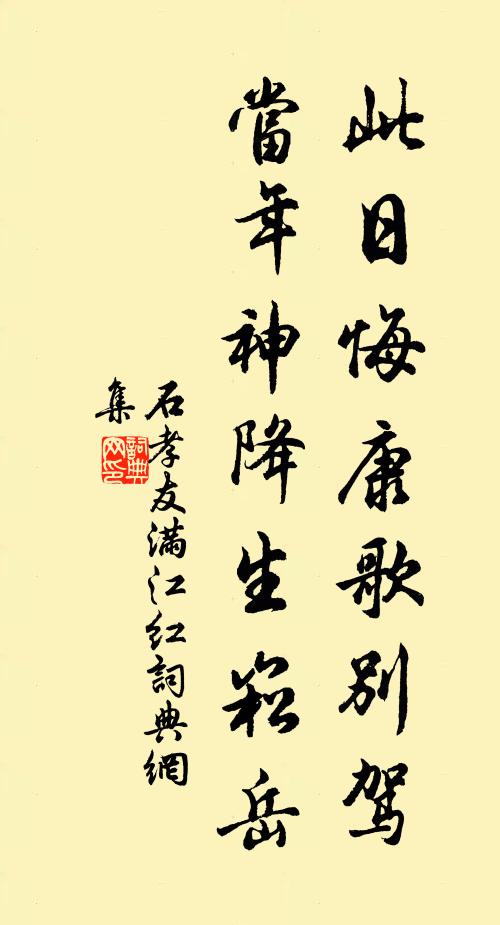 此日悔康歌别駕
當年神降生崧岳
石孝友滿江紅詞典網
集
詞典
网印